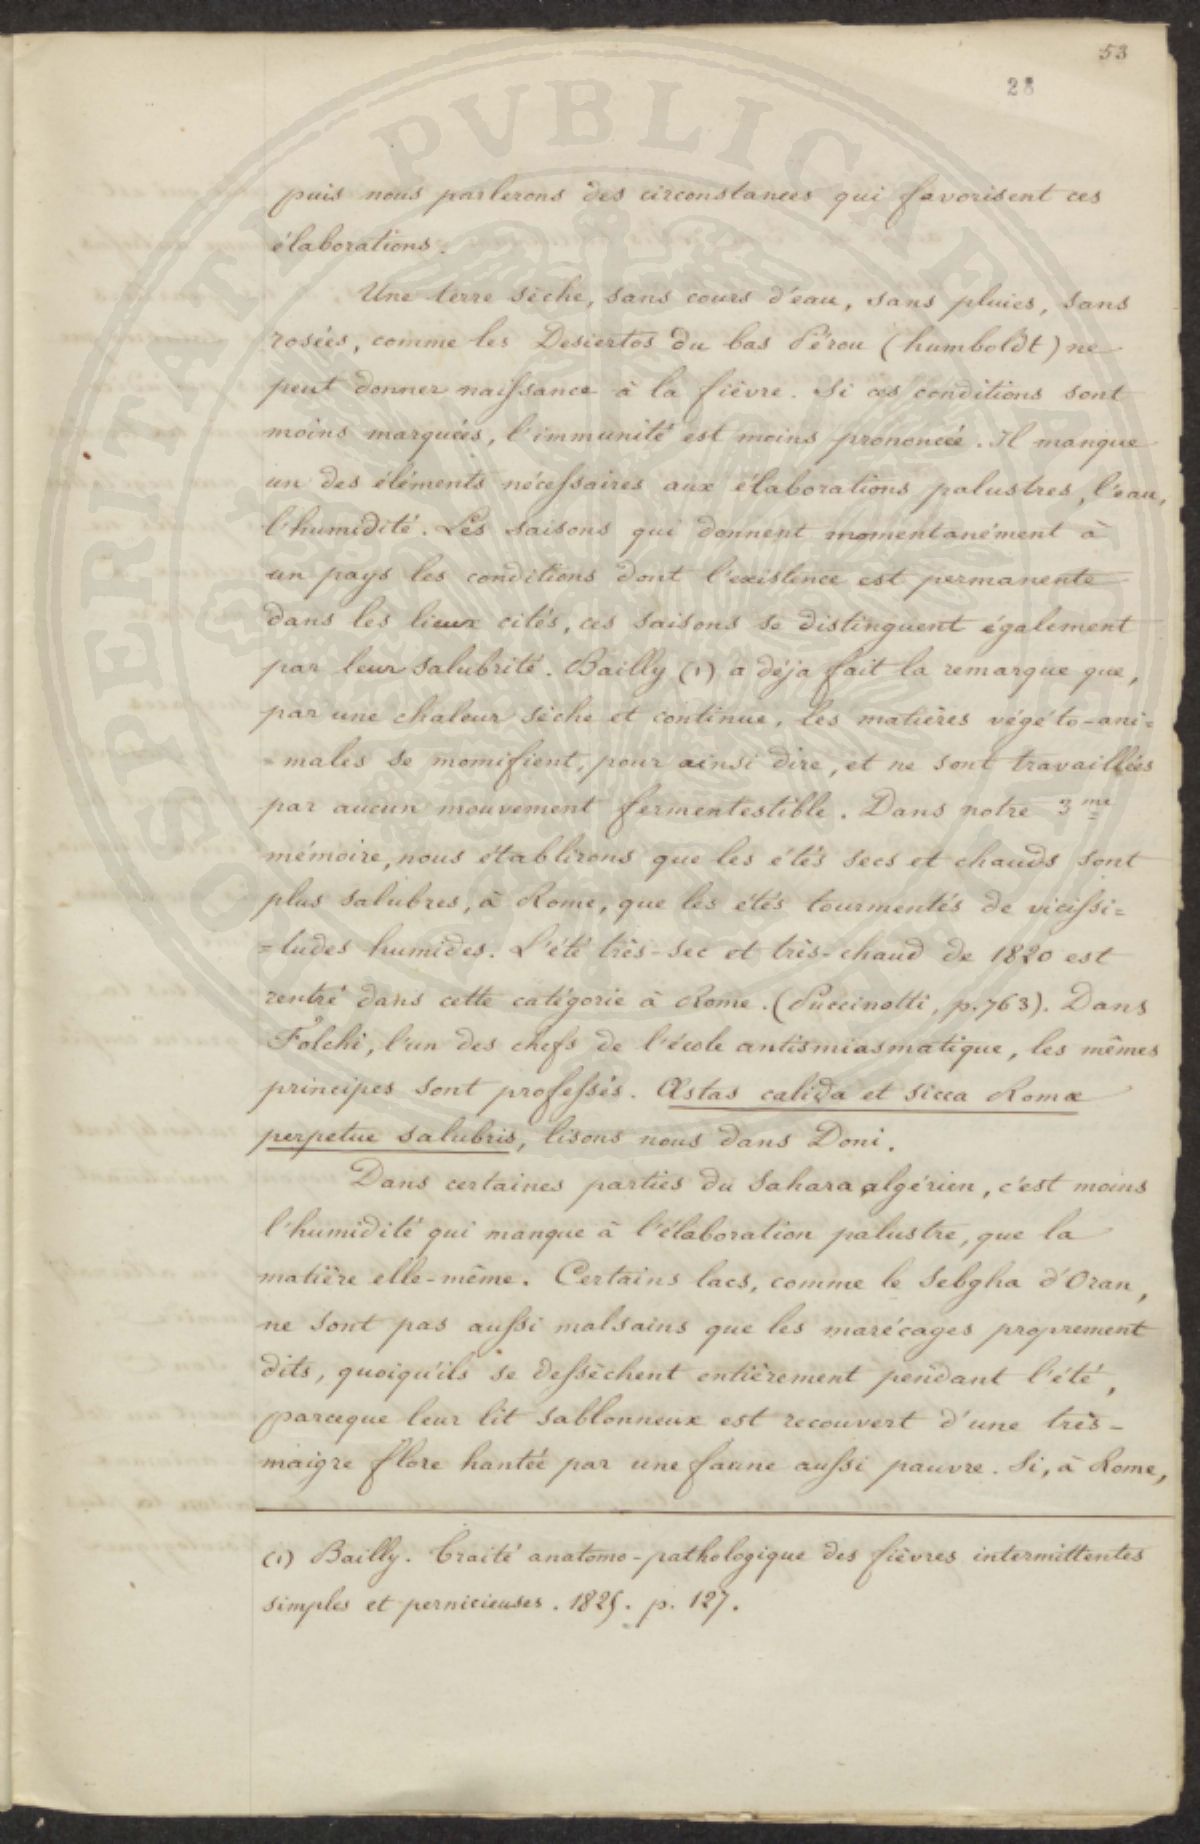 53
28
puis nous parlerons des circonstances qui favorisent ces
élaborations.
Une terre sèche, sans cours d'eau, sans pluies, sans
rosées, comme les Desiertos du bas Pérou (humboldt) ne
peut donner naissance à la fièvre. Si ces conditions sont
moins marquées, l'immunité est moins prononcée. Il manque
un des éléments nécessaires aux élaborations palustres, l'eau,
l'humidité. Les saisons qui donnent momentanément à
un pays les conditions dont l'existence est permanente
dans les lieux cités, ces saisons se distinguent également
par leur salubrité. Bailly (1) a déja fait la remarque que,
par une chaleur sèche et continue, les matières végéto-ani=
=males se momifient, pour ainsi dire, et ne sont travaillées
par aucun mouvement fermentestible. Dans notre 3me
mémoire, nous établirons que les étés secs et chauds sont
plus salubres, à Rome, que les étés tourmentés de vicissi=
=tudes humides. L'été très-sec et très-chaud de 1820 est
rentré dans cette catégorie à Rome. (Puccinotti, p. 763). Dans
Folchi, l'un des chefs de l'école antismiasmatique, les mêmes
principes sont professés. Æstas calida et sicca Romæ
perpetue salubris, lisons nous dans Doni.
Dans certaines parties du Sahara algérien, c'est moins
l'humidité qui manque à l'élaboration palustre, que la
matière elle-même. Certains lacs, comme le Sebgha d'Oran,
ne sont pas aussi malsains que les marécages proprement
dits, quoiqu'ils se dessèchent entièrement pendant l'été,
parceque leur lit sablonneux est recouvert d'une très-
maigre flore hantée par une faune aussi pauvre. Si, à Rome,
(1) Bailly. Traité anatomo-pathologique des fièvres intermittentes
simples et pernicieuses. 1825. p. 127.
PROSPERITATI PVBLICAE